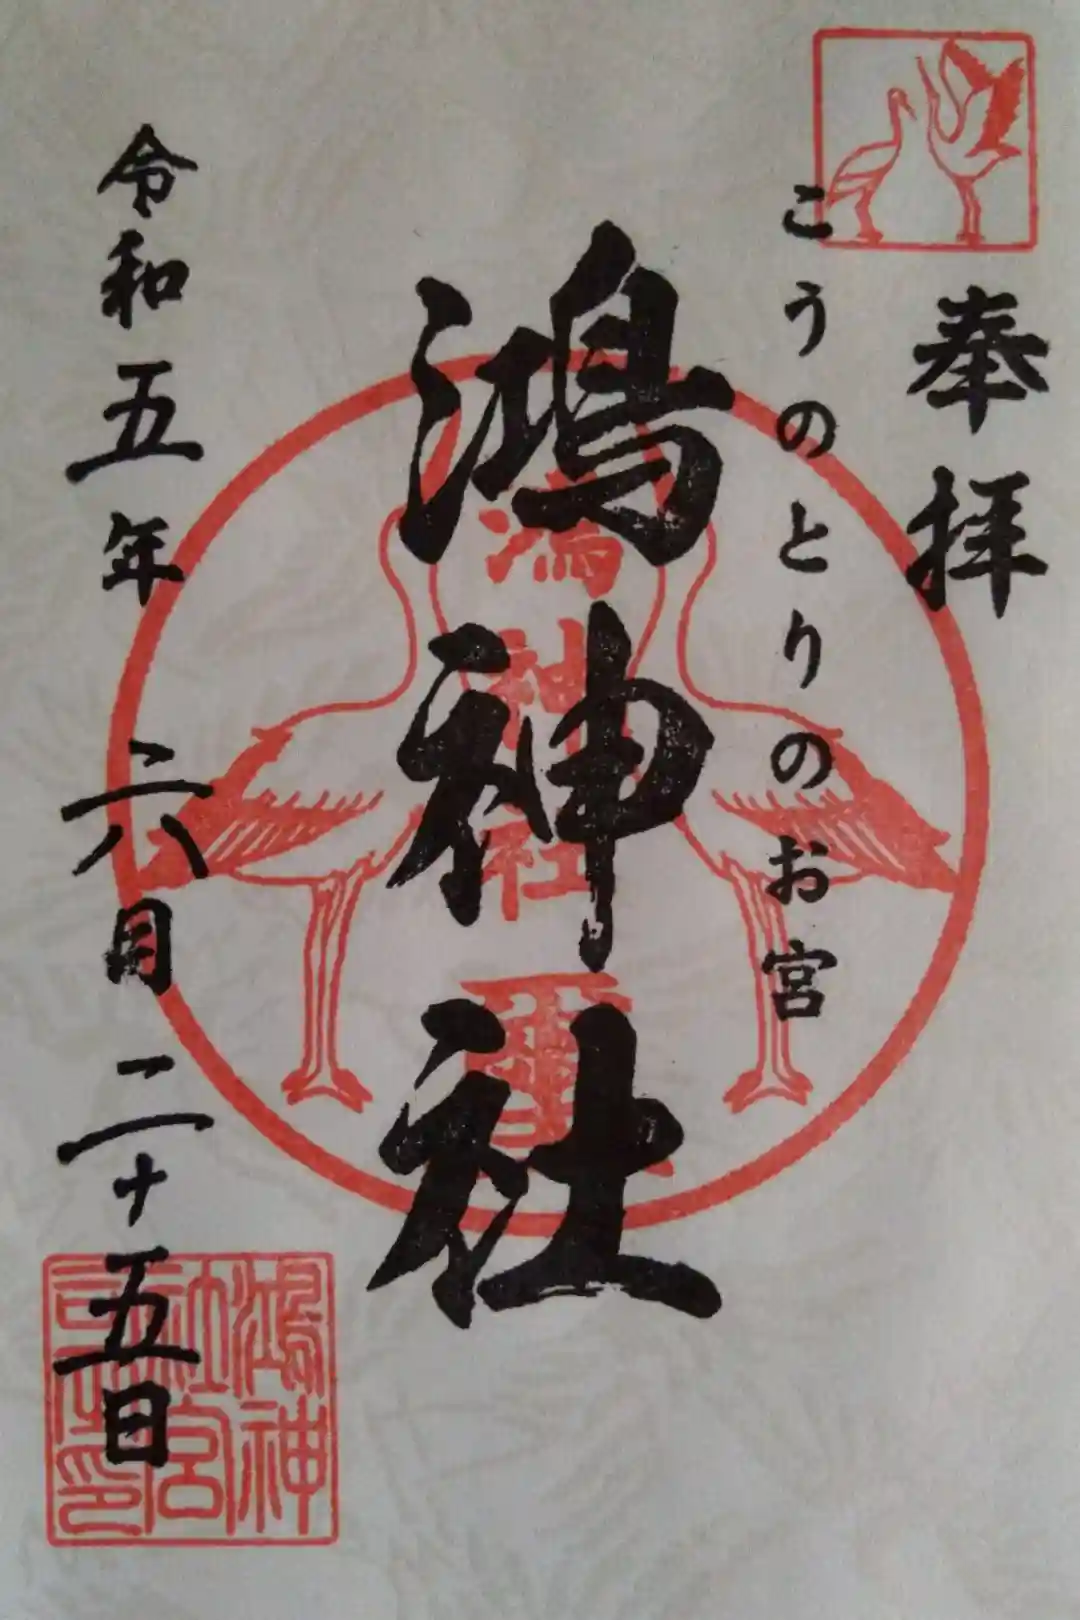 奉拝
こうのとりのお宮
鴻神社
鴻神社
璽
令和五年六月二十五日
鴻神
社宮
司之印